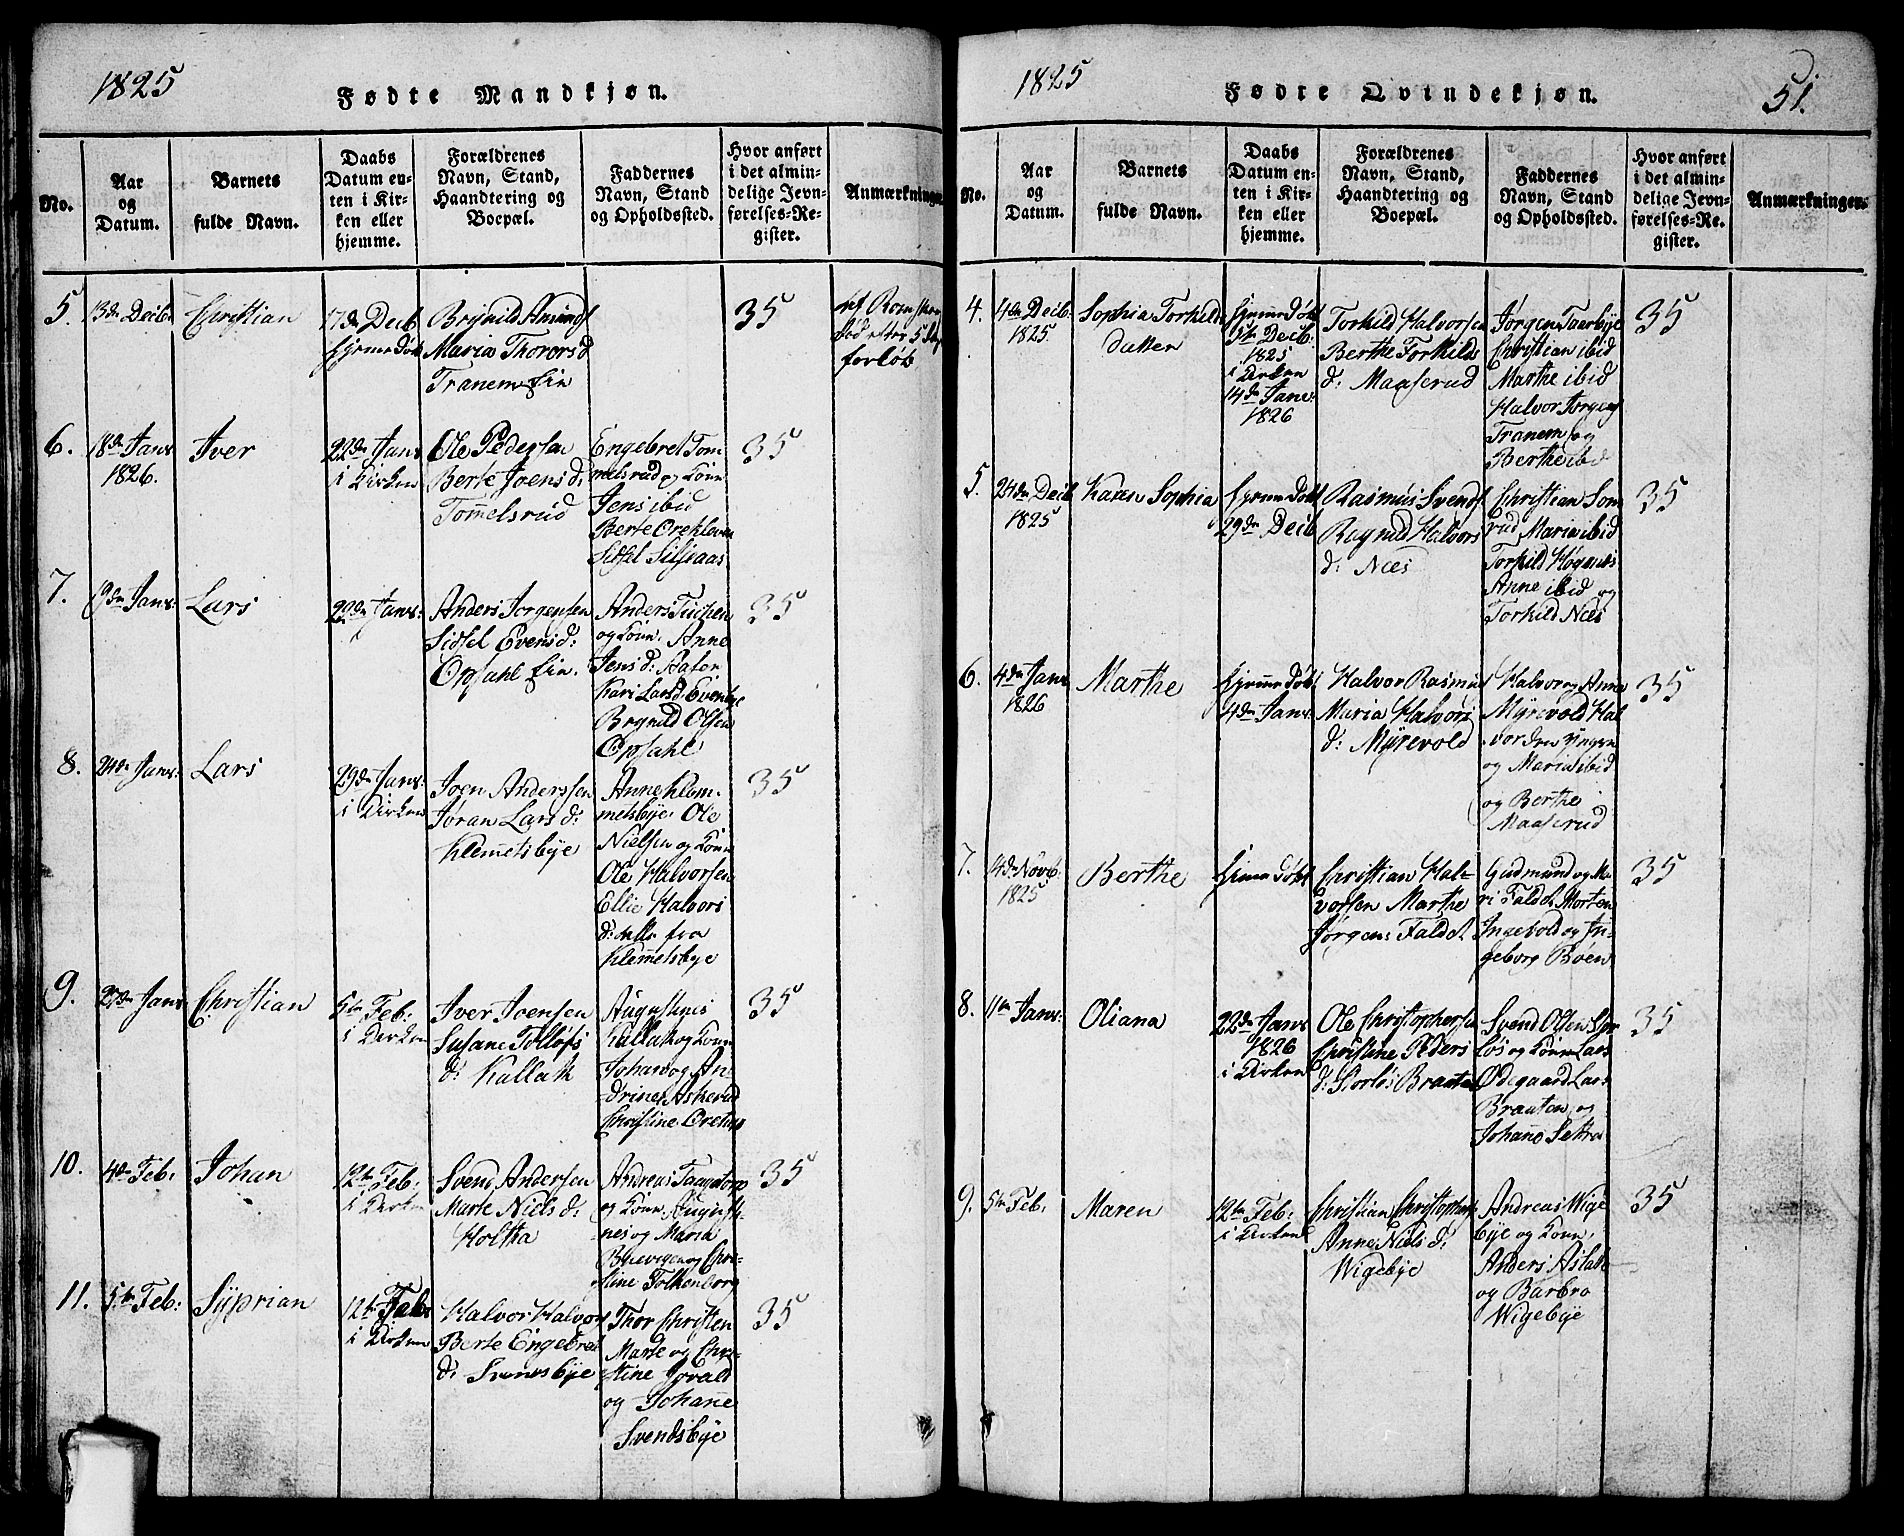 1825
Fødte Mandkjøn.
No.
Aar
og
Datum.
Barnets
fulde Navn.
Daabs
Datum en-
ten i Kir-
ken eller
hjemme.
Forældrenes
Navn, Stand,
Haandtering og
Boepæl.
Faddernes
Navn, Stand
og Opholdssted.
Hvor anført
i det almin-
delige Jevn-
førelses-Re-
gister.
Anmærkninger.
5.
13de Decbr
Christian
17de Decb
hjemedøbt
Brynild Amunds
Maria Thorers d
Tranem Eie
35
forløb
6.
18de Janr
1826.
Iver
22de Janr
i Kirken
Ole Pedersen
Berte Joens d:
Tommelsrud
Engebret Tom
melsrud og Kone
Jens ibid
Berte Orekleven
Sidsel Siljeaas
35
7.
9de Janr:
Lars
22de Janr:
Anders Jorgensen
Sidsel Evens d:
Opsahl Eie.
Anders Tuchen
og Kone, Anne
Jens d:
Kari Lars d: Evenbye
Brynild Olsen
Opsahl
35
8.
24de Janr:
Lars
29de Janr:
i Kirken
Joen Anderssen
Jøran Lars d:
Klemmetsbye
Anne Klem-
metsbye, Ole
Nielsen og Kone
Ole Halvorsen
Ellie Halvors
d: alle fra
Klemmetsbye
35
9.
27de Janr
Christian
5te Feb:
i Kirken
Iver Joensen
Susane Tolløfs
d: Kallak
Augustinus
Kallak og Kone
Johans og An-
drine Askerud
Christine
35
10.
4de Feb:
Johan
12te Feb:
i Kirken
Svend Andersen
Marte Niels d:
Holtta
Andreas Taagetorp
og Kone, Augusti-
nes og Maria
og Chri-
stine Folkenborg
35
11.
5te Feb:
Syprian
12te Feb:
i Kirken
Halvor Halvors
Berte Engebret
d: Svensbye
Thor Christen
Marte og Chri-
stine
og Johanne
Svendsbye
35
1825
Fødte Qvindekjøn.
51.
No.
Aar
og
Datum.
Barnets
fulde Navn.
Daabs
Datum en-
ten i Kir-
ken eller
hjemme.
Forældrenes
Navn, Stand,
Haandtering og
Boepæl.
Faddernes
Navn, Stand
og Opholdssted.
Hvor anført
i det almin-
delige Jevn-
førelses-Re-
gister.
Anmærkninger.
4.
4de Decb.
1825
Sophia Torkilds
datter
hjemmedøbt
5te Decb:
1825
i Kirken
14de Janr:
1826
Torkild Halvorsen
Berthe Torkilds
d: Maaserud
Jørgen Taarbye
Christian ibid
Marthe ibid
Halvor Jørgens
Tranem og
Berthe ibid
35
5.
24de Decb
1825
Karen Sophia
hjemedøbt
29de Decb
Rasmus Svends
Ragnild Halvors
d: Næs
Christian Som
rud Maria ibid
Torkild Høgnæs
Anne ibid og
Torkild Næs
35
6.
4de Janr
1826
Marthe
hjemmedøbt
4de Janr:
Halvor Rasmus
Maria Halvors
d: Myrevold
Halvor og Anne
Myrevold Hal
vor den Yngre
og Maria ibid
og Berthe
Maaserud
35
7.
14de Novb
1825
Berthe
hjemedøbt
Christian Hal-
vorsen Marthe
Jørgens Faldet
Gudmund og Ma-
ri Faldet, Morten
Ingevold og In-
geborg Bøen
35
8.
11te Janr:
Oliana
22de Janr
1826
i Kirken
Ole Christophersen
Christine Peders
d: Storløs Braaten
Svend Olsen Stor
løs og Kone Lars
Ødegaard Lars
Braaten og
Johane Settra
35
9.
5te Feb:
Maren
12te Feb:
i Kirken
Christian Christophers
Anne Niels d:
Wigebye
Andreas Wige
bye og Kone,
Anders Aslak
og Barbro
Wigebye
35